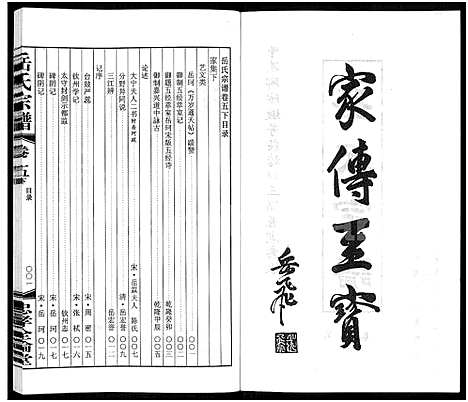 家傳至寶
岳飛
岳氏宗譜卷五下目录
家集下
艺文类
岳珂《万岁通天帖》跋赞 〇〇一
御制五经萃室记 乾隆癸卯 〇〇三
御题五经萃室岳珂宋版五经诗
御制嘉兴道中咏古 乾隆甲辰 〇〇五
论述
大宁夫人二书 宋·岳霖夫人 陈氏 〇〇六
分野异同说 清·岳宏誉 〇〇九
三江辨 岳宏誉 〇一二
记序
台鼓广蕊 宋·周密 〇一五
钦州学记 宋·张栻 〇一六
太守封剑示都监 钦州志 〇一七
碑阴记 宋·岳珂 〇一七
碑阴记 宋·岳珂 〇一九
岳氏宗譜
卷五下
目录
〇〇一